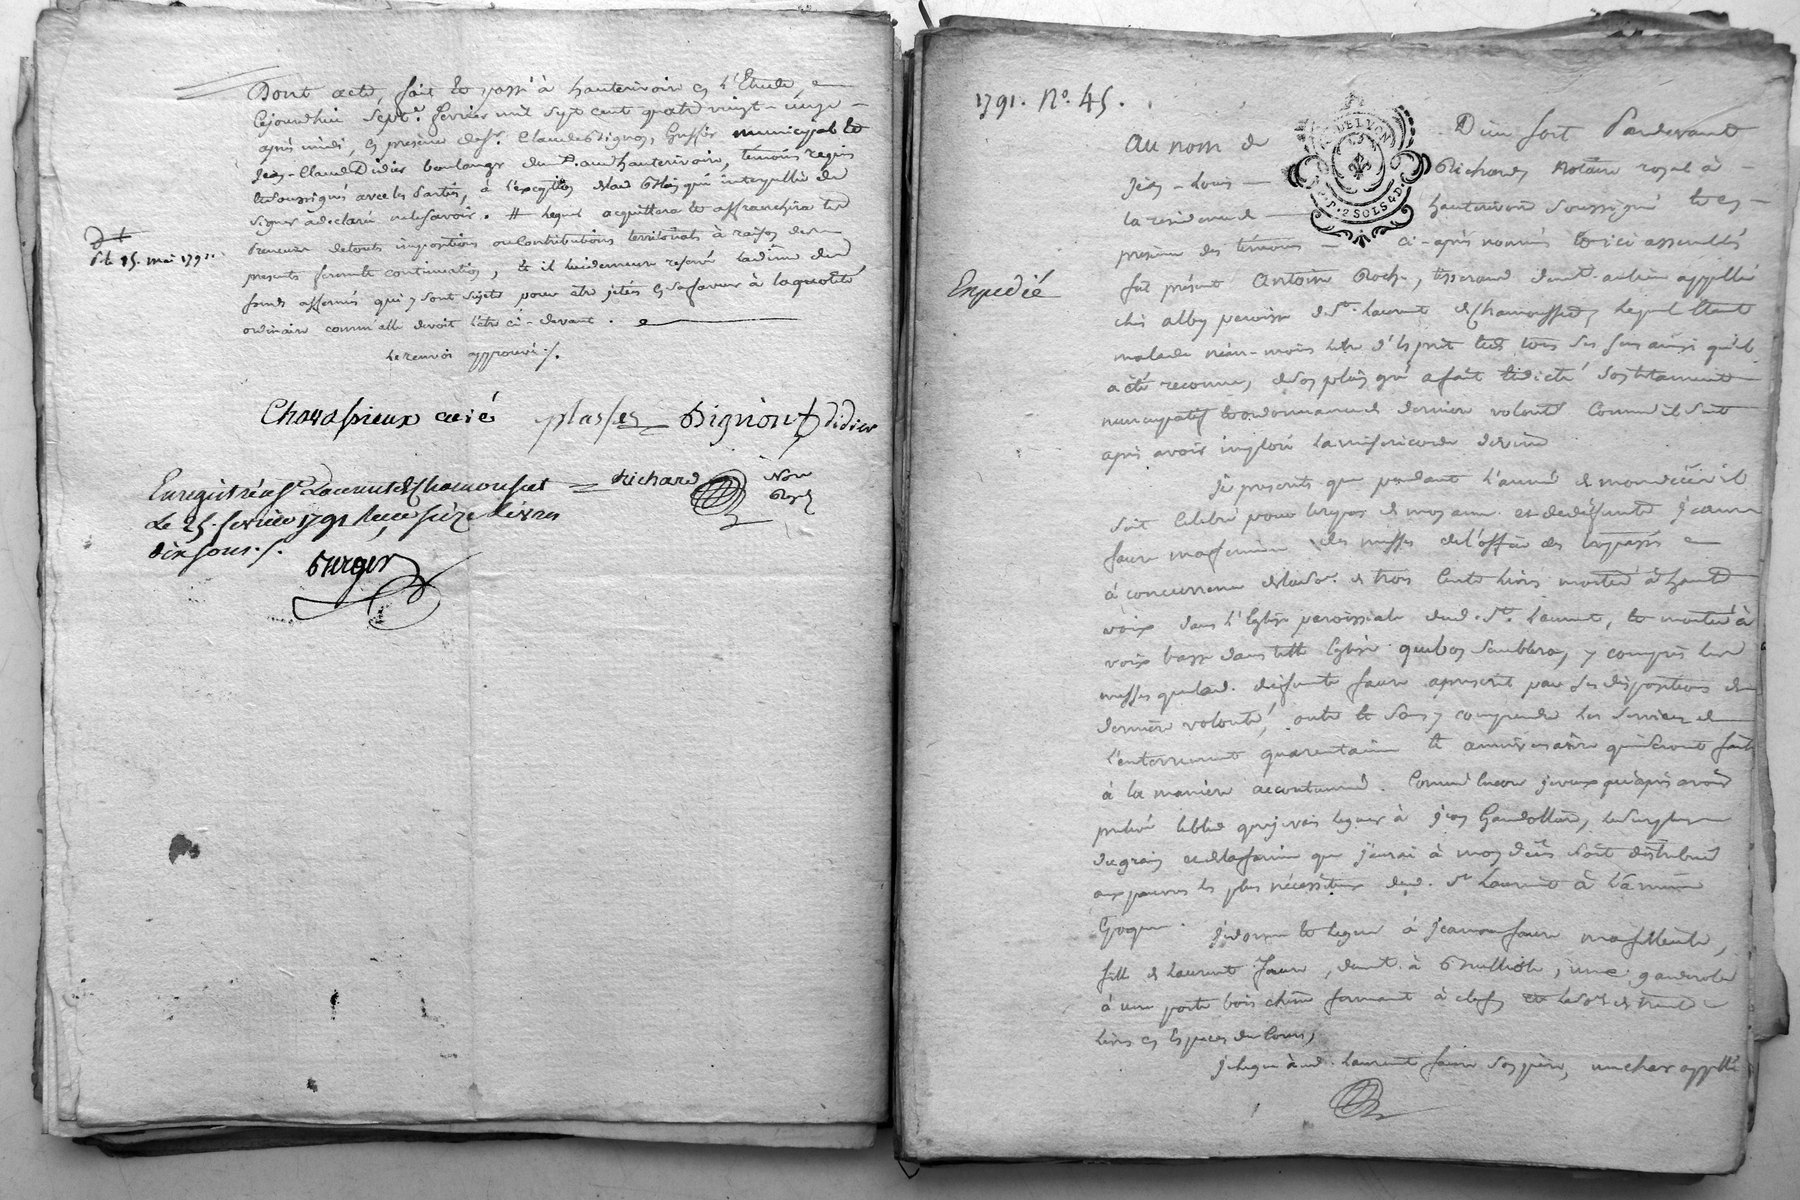 Dont acte, fait et passé à hauterivoire en l'Etude,
cejourdhui sept.e fevrier mil sept cent quatre vingt-onze
après midi, en présence de Sr. Claude Pignon, Greffier municipal et
Jean-Claude Didier boulanger dem.t audit hauterivoire, témoins requis
et soussignés avec les parties, à l'exception dudit qui interpellé de
signer a déclaré ne le savoir. # lequel acquittera et affranchira le
preneur de toutes impositions ou contributions territoriales à raison des
presents continuation, et il
fonds affermés qui y sont sujets pour être à la quotité
ordinaire comme elle devoit l'être ci-devant.
le renvoi approuvé ./.
#
d. le 15. mai 1791.
Chavassieux curé plasses Pignion Didier
Enregistré à St. Laurent de Chamousset Richard Nore Royal
Le 25. fevrier 1791 Reçu seize Livres
dix sous ./.
Berger
1791. No. 45.
DE LYON
P. 2 SOLS 4 D.
Expedié
Au nom de Dieu soit Pardevant
Jean-Louis Richard Notaire royal à
la résidence hauterivoire soussigné et en
présence des témoins ci-après nommés et ici assemblés
fut présent Antoine Roche, tisserand dem.t au lieu appellé
chés alby paroisse de St. Laurent de Chamousset, lequel étant
malade néan-moins libre d'esprit et de tous ses sens ainsi qu'il
a été reconnu, de son plein gré a fait et dicté son testament
nuncupatif et ordonnance de dernière volonté comme il suit
après avoir imploré la misericorde divine
Je prescrits que pendant l'année de mon décès il
soit célébré pour le repos de mon ame et de défunte Jeanne
faure ma femme des messes de l'office des trépassés
à concurrence de la so.e de trois cents livres moitié à haute
voix dans l'Eglise paroissiale dud. St. Laurent, et moitié à
voix basse dans telle Eglise que bon semblera, y compris les
messes que lad. défunte faure a prescrit par ses dispositions de
dernière volonté, outre et sans y comprendre les services de
l'enterrement quarantaine et anniversaire qui seront faits
à la manière accoutumée. Comme encore je veux qu'après avoir
prélevé le bled que je vais leguer à Jean Gandollière, le surplus
du grain et de la farine que j'aurai à mon décès soit distribué
aux pauvres les plus nécessiteux dud. St Laurent à la même
Epoque. Je donne et legue à Jeanne faure ma filleule,
fille de Laurent faure, dem.t à Brullioles, une garderobe
à une porte bois chêne fermant à clef, et la so.e de trente
livres en especes de cours,
Je legue aud. Laurent faure son père, un char appellé